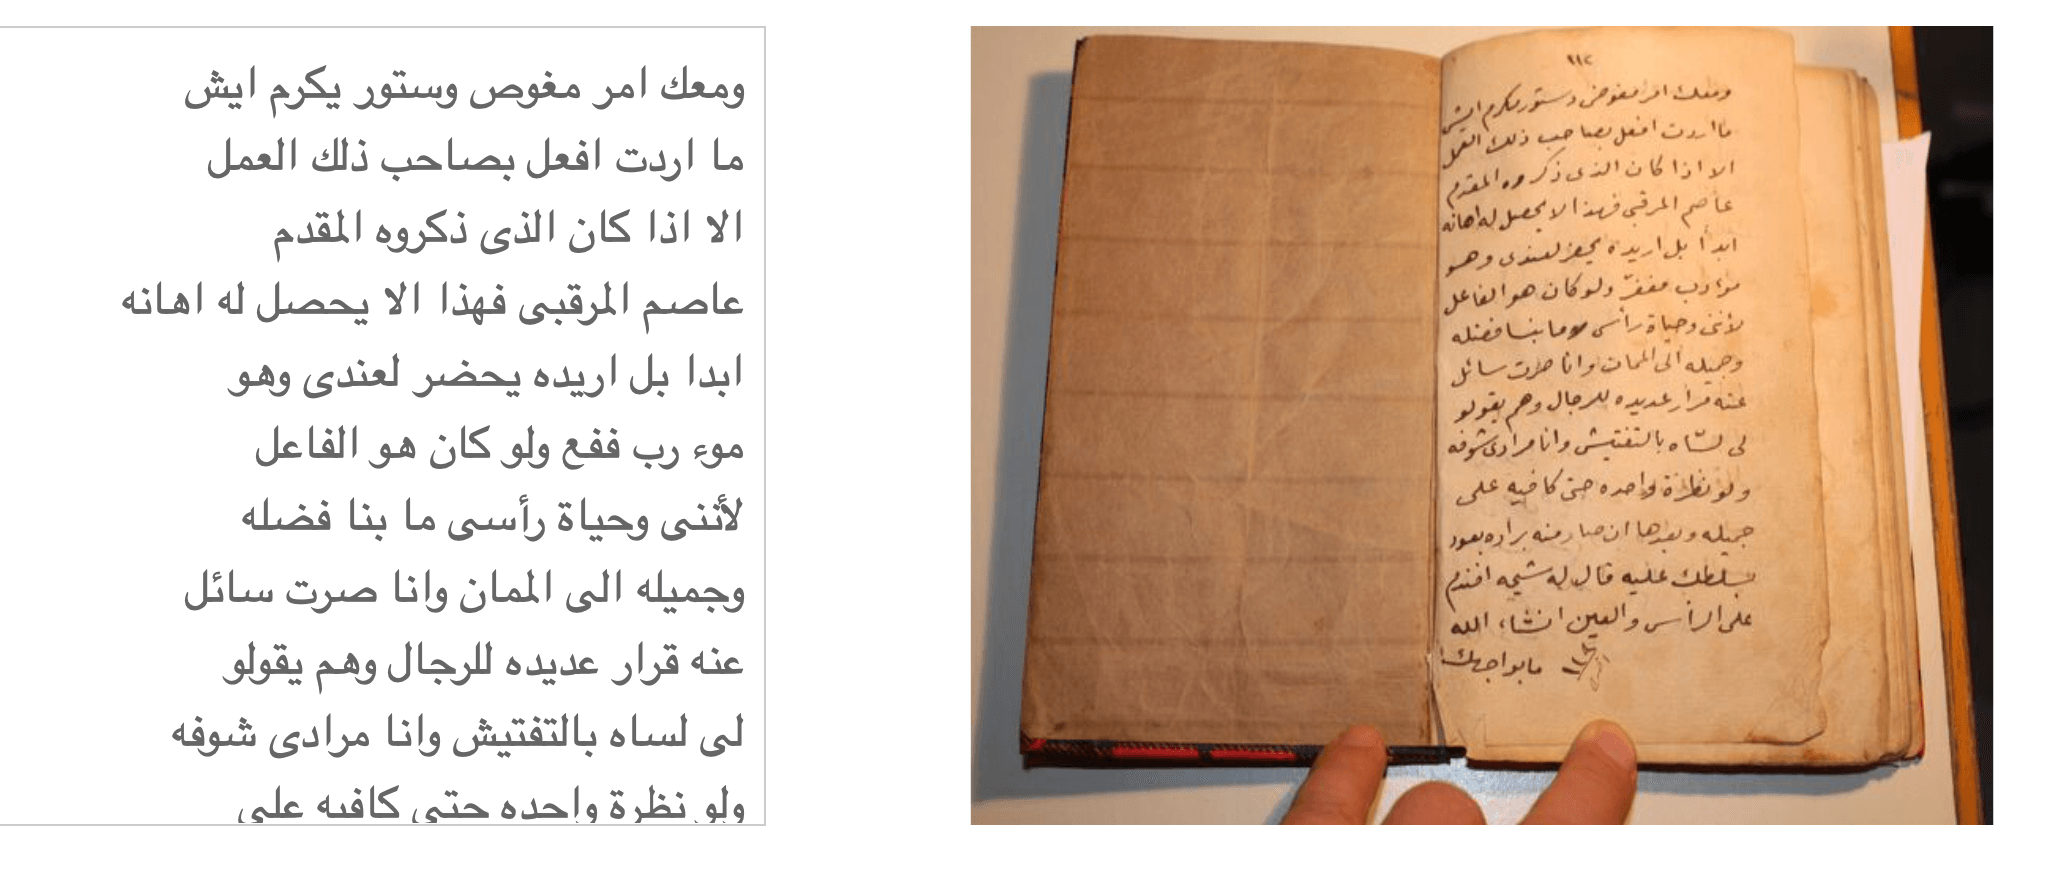 ومعك امر مغوص وستور يكرم ايش
ما اردت افعل بصاحب ذلك العمل
الا اذا كان الذى ذكروه المقدم
عاصم المرقبى فهذا الا يحصل له اهانه
ابدا بل اريده يحضر لعندى وهو
موء رب ففع ولو كان هو الفاعل
لأننى وحياة رأسى ما بنا فضله
وجميله الى الممان وانا صرت سائل
عنه قرار عديده للرجال وهم يقولو
لى لساه بالتفتيش وانا مرادى شوفه
ولو نظرة واحده حتى كافيه على
١١٢
ومعك امر مفوض دستور مكرم ايش
ما اردت افعل بصاحب ذلك العمل
الا اذا كان الذى ذكروه المقدم
عاصم المرقبى فهذا لا يحصل له اهانه
ابدا بل اريده يحضر لعندى وهو
ولو كان هو الفاعل
لأننى وحياة رأسى ما بنسا فضله
وجميله الى الممات وانا صرت سائل
عنه مرار عديده للرجال وهم يقولو
لى لسّاه بالتفتيش وانا مرادى شوفه
ولو نظرة واحده حتى كافيه على
جميله وبعدها ان صار منه براده بعود
بسلطك عليه قال له شيحه افندم
على الرأس والعين انشاء الله
ما بواجهك